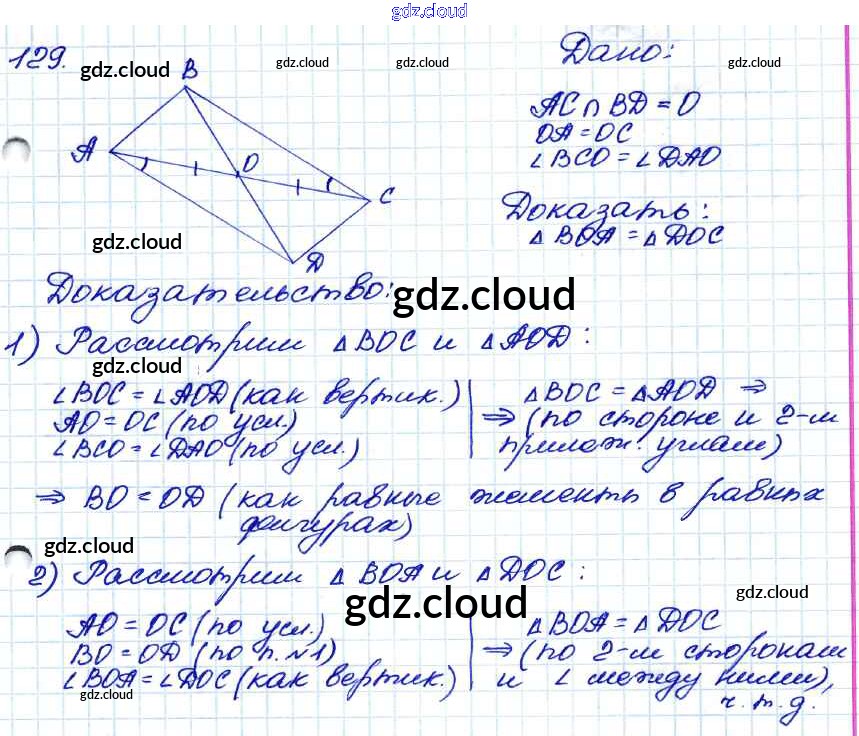 gdz.cloud
129.
gdz.cloud
gdz.cloud
gdz.cloud
gdz.cloud
B
A
O
C
D
Дано:
AC ∩ BD = O
OA = OC
∠BCO = ∠DAO
Доказать:
△BOA = △DOC
gdz.cloud
Доказательство:
gdz.cloud
1) Рассмотрим △BOC и △AOD:
gdz.cloud
∠BOC = ∠AOD (как вертик.)
AO = OC (по усл.)
∠BCO = ∠DAO (по усл.)
△BOC = △AOD ⇒
⇒ (по стороне и 2-м
прилеж. углам)
⇒ BO = OD (как равные элементы в равных
фигурах)
gdz.cloud
2) Рассмотрим △BOA и △DOC:
gdz.cloud
gdz.cloud
gdz.cloud
AO = OC (по усл.)
BO = OD (по п. №1)
∠BOA = ∠DOC (как вертик.)
gdz.cloud
△BOA = △DOC
⇒ (по 2-м сторонам
и ∠ между ними),
ч.т.д.